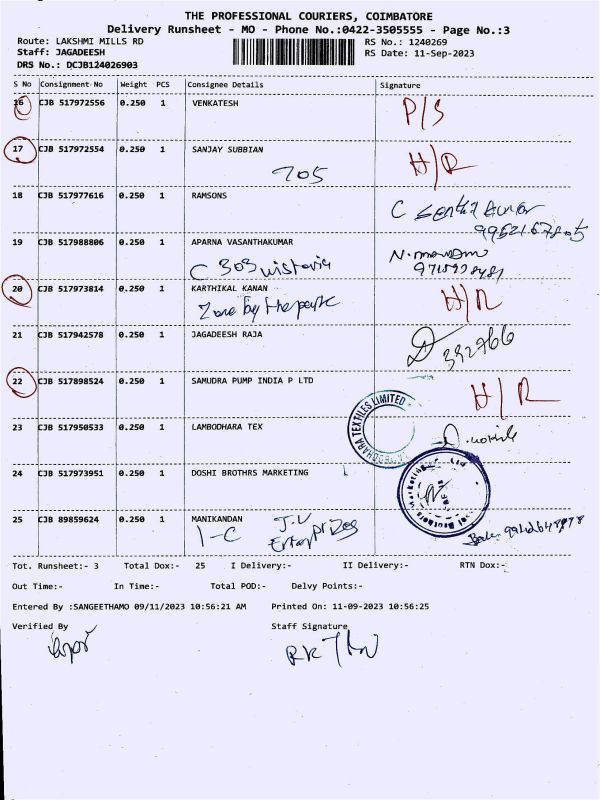 THE PROFESSIONAL COURIERS, COIMBATORE
Delivery Runsheet - MO - Phone No.:0422-3505555 - Page No.:3
Route: LAKSHMI MILLS RD
RS No.: 1240269
Staff: JAGADEESH
RS Date: 11-Sep-2023
DRS No.: DCJB124026903
S No Consignment No Weight PCS Consignee Details Signature
16 CJB 517972556 0.250 1 VENKATESH P/S
17 CJB 517972554 0.250 1 SANJAY SUBBIAN H/R
705
18 CJB 517977616 0.250 1 RAMSONS
19 CJB 517988806 0.250 1 APARNA VASANTHAKUMAR
C 303 wistoria
20 CJB 517973814 0.250 1 KARTHIKAL KANAN H/R
Zone by the
21 CJB 517942578 0.250 1 JAGADEESH RAJA
392766
22 CJB 517898524 0.250 1 SAMUDRA PUMP INDIA P LTD H/R
TEXTILES LIMITED
23 CJB 517950533 0.250 1 LAMBODHARA TEX
24 CJB 517973951 0.250 1 DOSHI BROTHRS MARKETING
25 CJB 89859624 0.250 1 MANIKANDAN
1-C J.V
Tot. Runsheet:- 3 Total Dox:- 25 I Delivery:- II Delivery:- RTN Dox:-
Out Time:- In Time:- Total POD:- Delvy Points:-
Entered By :SANGEETHAMO 09/11/2023 10:56:21 AM Printed On: 11-09-2023 10:56:25
Verified By Staff Signature